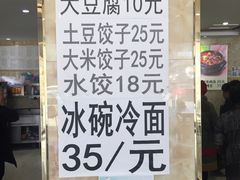 大豆腐10元
土豆饺子25元
大米饺子25元
水饺18元
冰碗冷面
35/元